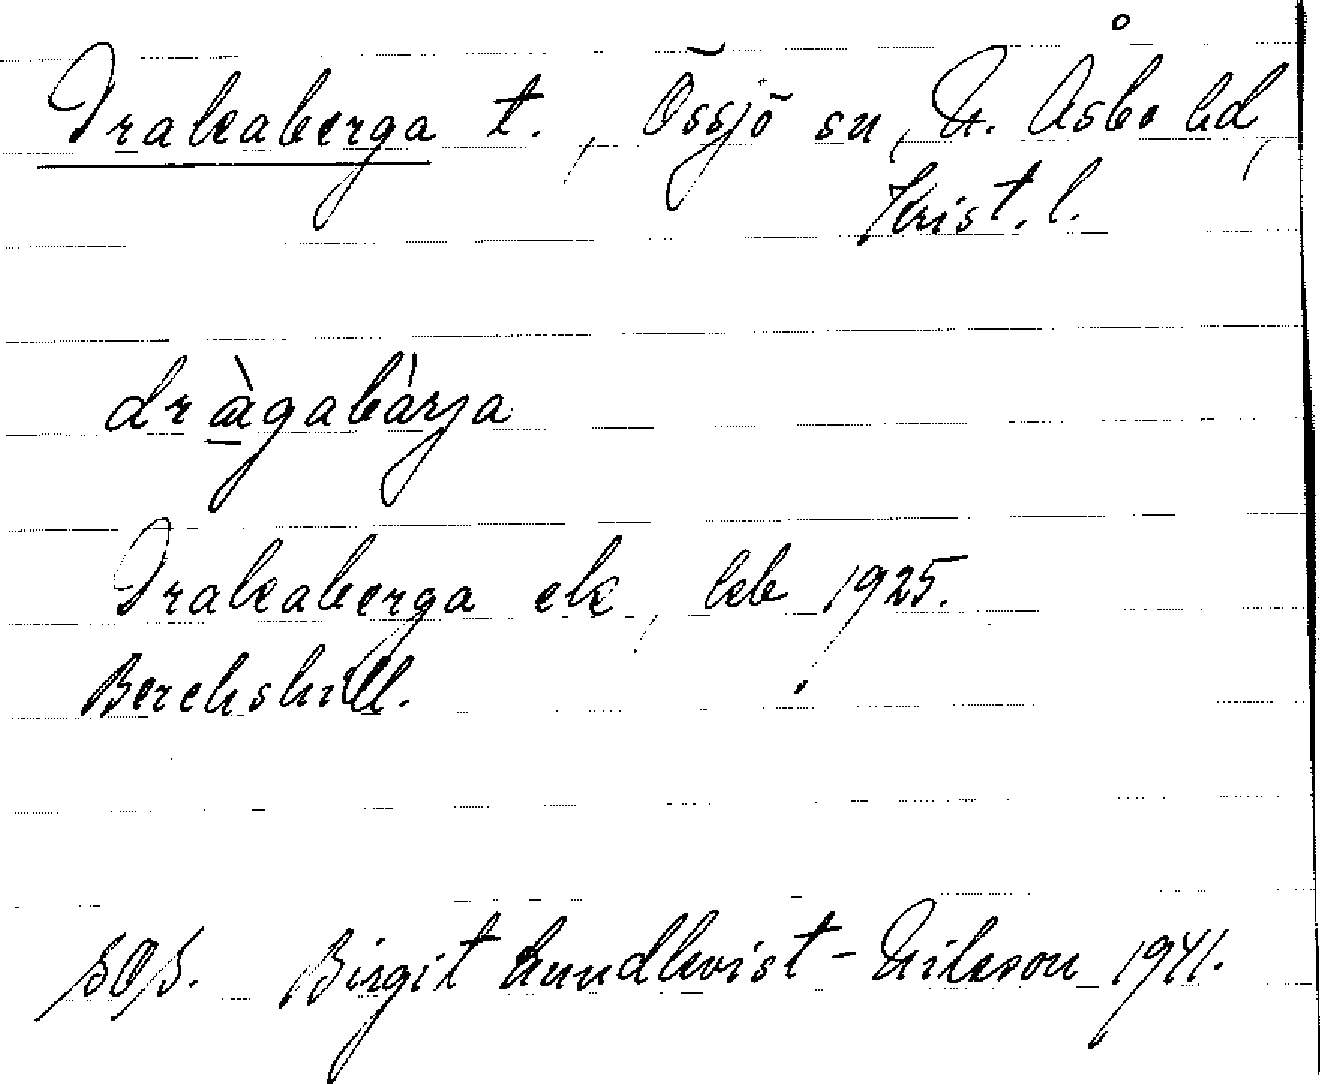 Drakaberga t., Össjö sn, N. Åsbo hd,
Krist. l.
dràgabàrja
Drakaberga ek, kb 1925.
Berchshill.
SOS. Birgit Lundkvist-Nilsson 1941.